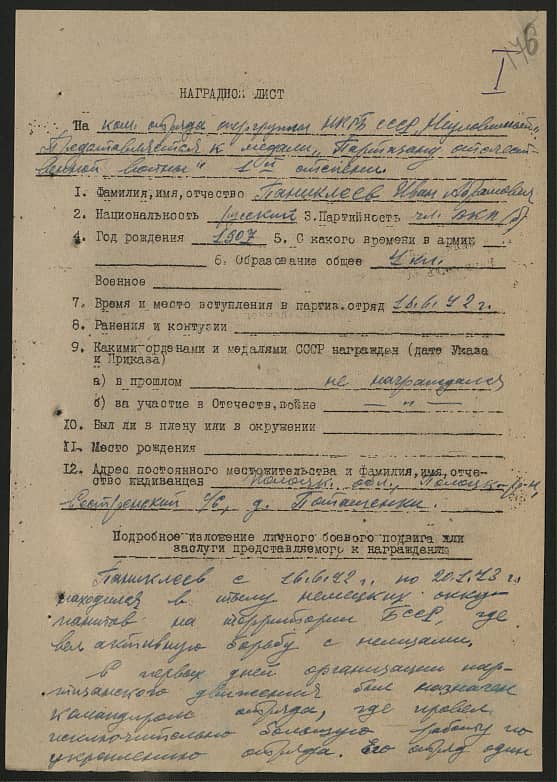 146
I
НАГРАДНОЙ ЛИСТ
На ком. отряда опергруппы НКГБ СССР „Неуловимый"
Представляется к медали „Партизану отечест-
венной войны" 1ой степени.
1. Фамилия, имя, отчество Паниклеев Иван Абрамович
2. Национальность русский 3. Партийность чл. ВКП/б/
4. Год рождения 1907 5. С какого времени в армии
6. Образование общее 4 кл.
Военное
7. Время и место вступления в партиз. отряд 16.6.42 г.
8. Ранения и контузии
9. Какими орденами и медалями СССР награжден (дате Указа
и Приказа)
а) в прошлом не награждался
б) за участие в Отечеств. войне — „ —
10. Был ли в плену или в окружении
11. Место рождения
12. Адрес постоянного местожительства и фамилия, имя, отче-
ство иждивенцев Полоцк. обл., Полоцк. р-н,
с/с, д. Поташенки.
Подробное изложение личного боевого подвига или
заслуги представляемого к награждению
Паниклеев с 16.6.42 г. по 20.1.43 г.
находился в тылу немецких окку-
пантов на территории БССР, где
вел активную борьбу с немцами.
В первых дней организации пар-
тизанского движения был назначен
командиром отряда, где провел
исключительно большую работу по
укреплению отряда. Его отряд один